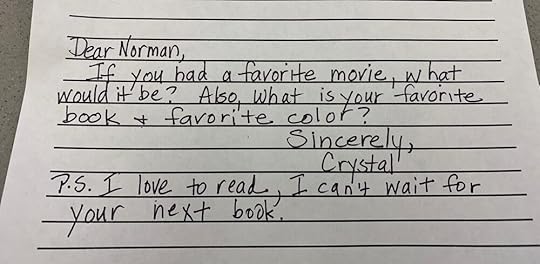 Dear Norman,
If you had a favorite movie, what
would it be? Also, what is your favorite
book + favorite color?
Sincerely,
Crystal
P.S. I love to read, I can't wait for
your next book.